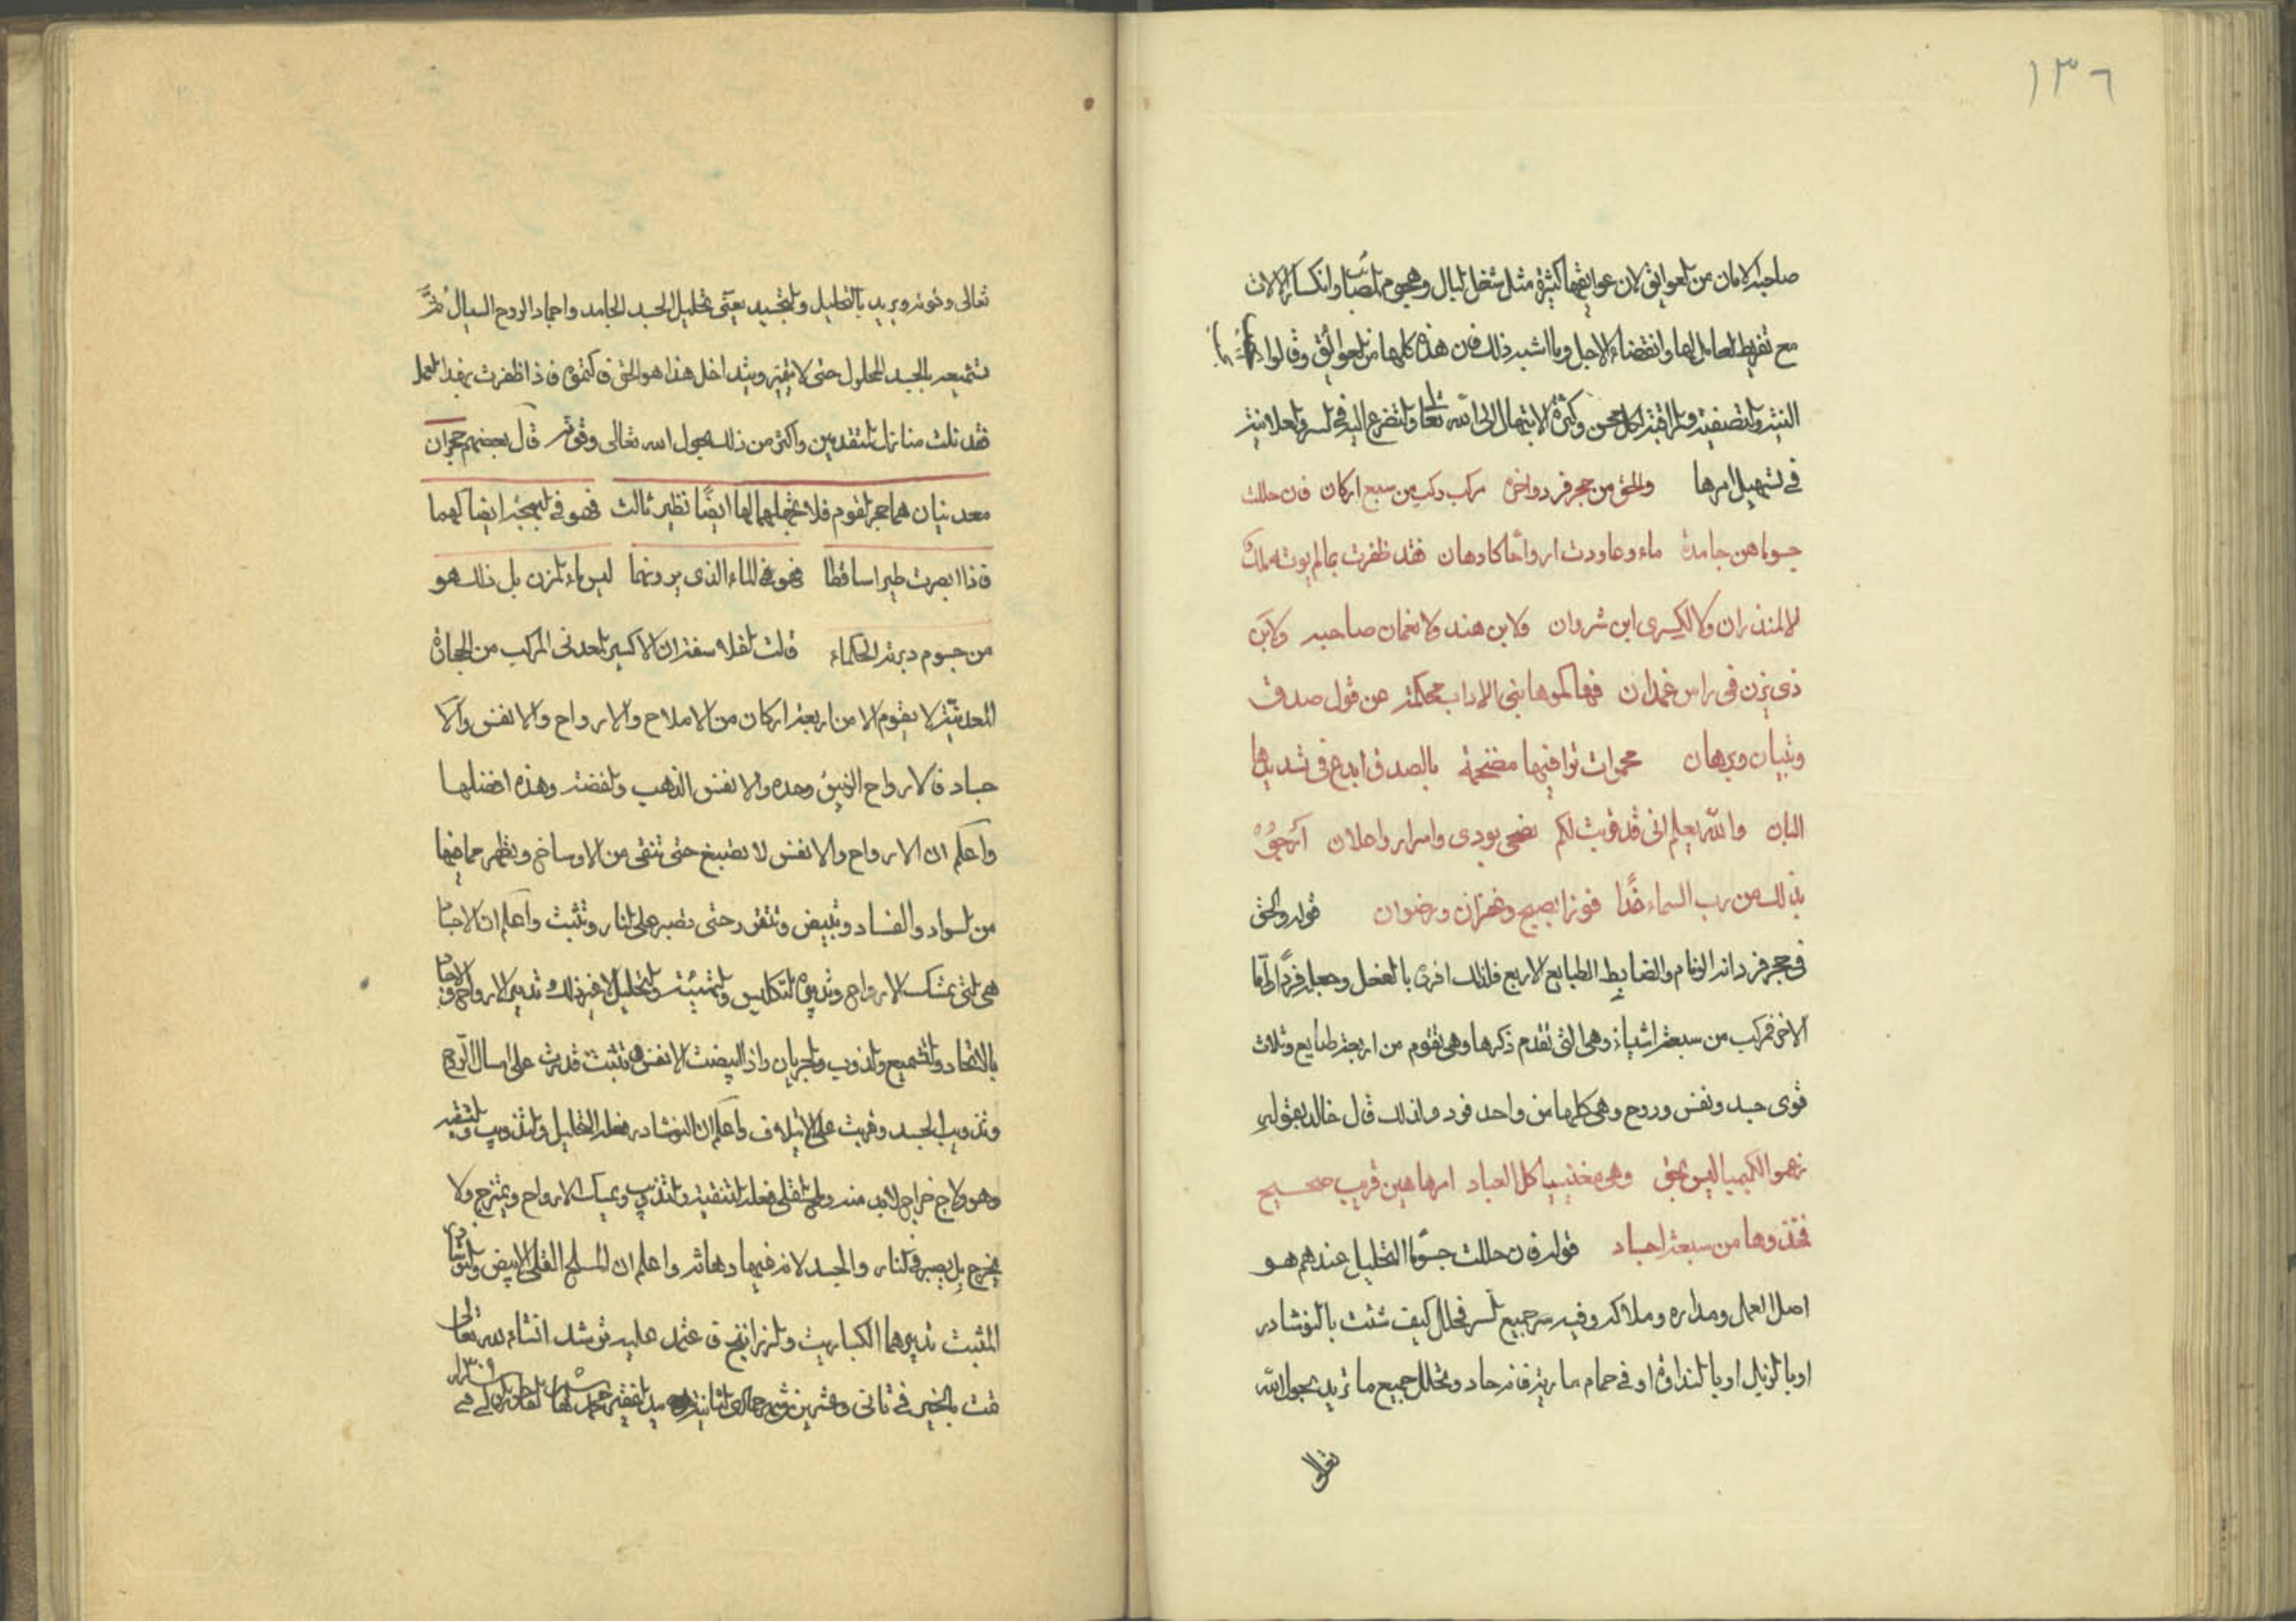 ١٣٦
صاحبه الامان من العوايق لان عوايقها كثيرة مثل شغل البال وهجوم المصائب وانكسار الالات
مع تفريط العامل لها وانقضاء الاجل وما اشبه ذلك فان هذه كلها من العوائق وقالوا
النية والتصفية والمراقبة لكل محسن وكثرة الابتهال الى الله تعالى والتضرع اليه في السر والعلانية
في تسهيل امرها والحق من حجر فرد واخره مركب ركب من سبع اركان فان حللت
جسوما هن جامدة ماء وعاودت ارواحا كادهان فقد ظفرت بمالم يوته ملك
لا المنذران ولا الكسرى ابن شروان ولا بن هند ولا نعمان صاحبه ولا بن
ذى يزن في راس غمدان فهاكموها بني الاداب محكمة عن قول صدق
وتبيان وبرهان محبرات قوافيها مضخمة بالصدق ابدع في تشديدها
البان والله يعلم انى قد قربت لكم نصحى بودى واسرار واعلان ارجو
بذالك من رب السماء غدًا فوزا بصبح وغفران ورضوان قوله والحق
في حجر فرد انه الوئام والضابط الطبايع الاربع فلذلك افرده بالفعل وجعله فردا واما
الاخر فمركب من سبعة اشياء وهى التى تقدم ذكرها وهى تقوم من اربعة طبايع وثلاث
قوى جسد ونفس وروح وهى كلها من واحد فرد ولذلك قال خالد بقوله
زهموا الكيميا ليس بحق وهى مغنيسيا كل العباد امرها هين قريب صحيح
فخذوها من سبعة اجساد قوله فان حللت جسوما التحليل عندهم هو
اصل العمل ومداره وملاكه وفيه سر جميع السر فحلل كيف شئت بالنوشادر
او بالزبل او بالنداوة او في حمام مارية فانه حاد وتحلل جميع ما تريد بحول الله
تعالى
تعالى وقوته ويريد بالتحليل والتجسيد يعنى تحليل الجسد الجامد واجماد الروح السيال ثم
تشميعه بالجسد المحلول حتى لا يتميز ويتداخل هذا هو الحق فاكتموه فاذا ظفرت بهذا العمل
فقد نلت منازل المتقدمين واكثر من ذلك بحول الله تعالى وقوته قال بعضهم حجران
معدنيان هما حجر القوم فلا تجهلهما لها ايضًا نظير ثالث فهو في البهجة ايضا كهما
فاذا ابصرت طيرا ساقطا نحو في الماء الذى يرونها ليس ماء المزن بل ذلك هو
من جسوم دبرته الحكماء قالت الفلاسفة ان الاكسير المعدنى المركب من الحجارة
المعدنية لا يقوم الا من اربعة اركان من الاملاح والارواح والانفس والا
جساد فالارواح الزيبق وحده والانفس الذهب والفضة وهذه افضلها
واعلم ان الارواح والانفس لا تصبغ حتى تنقى من الاوساخ ويظهر ما فيها
من السواد والفساد وتبيض وتتقرر حتى تصبر على النار وتثبت واعلم ان الاجساد
هى التى تمسك الارواح وتدبيره التكليس والتشبيث والتحليل لا غير ذلك وتدبير الارواح والاجساد
بالاتحاد والتشميع والذوب والجريان واذا ابيضت الانفس وتثبت قدرت على امساك الروح
وتذويب الجسد وقربت على الائتلاف واعلم ان النوشادر فعله التحليل والتذويب والتنقية
وهو ولاج خراج لابد منه والملح القلى فعله التنقية والتذويب ويمسك الارواح ويمتزج ولا
يخرج بل يصبر في النار والجسد لانه فيها دهانته واعلم ان الملح القلى الابيض والنوشادر
المثبت تدبيرهما الكباريت والزرانيخ فاعتمد عليه ترشد انشاء الله تعالى
تمت بالخير في ثانى وعشرين شهر جمادى الثانية بيد الفقير محمد ١٣٠٩